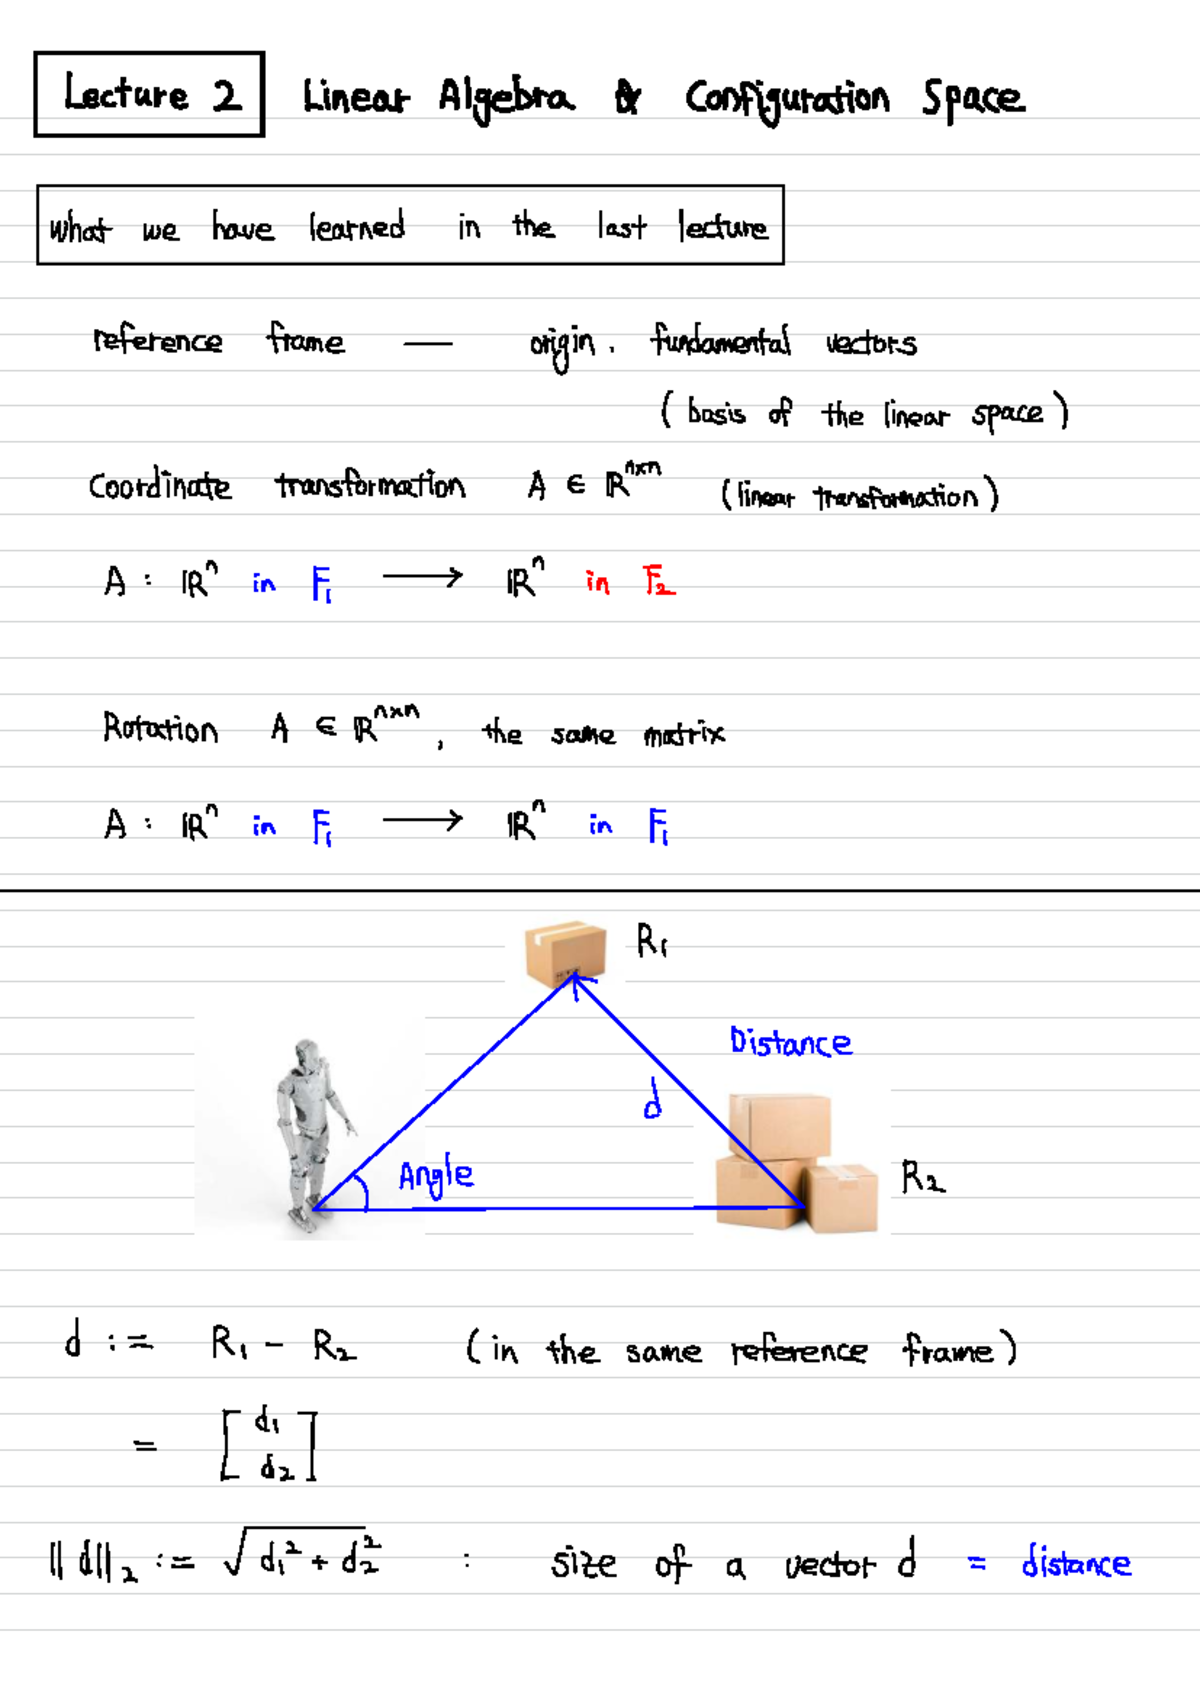 Lecture 2 Linear Algebra & Configuration Space
What we have learned in the last lecture
reference frame — origin. fundamental vectors
(basis of the linear space)
Coordinate transformation A ∈ ℝⁿˣⁿ (linear transformation)
A : ℝⁿ in F₁ ⟶ ℝⁿ in F₂
Rotation A ∈ ℝⁿˣⁿ, the same matrix
A : ℝⁿ in F₁ ⟶ ℝⁿ in F₁
R₁
Distance
d
Angle
R₂
d := R₁ - R₂ (in the same reference frame)
= [d₁ d₂]
||d||₂ := √(d₁² + d₂²) : size of a vector d = distance